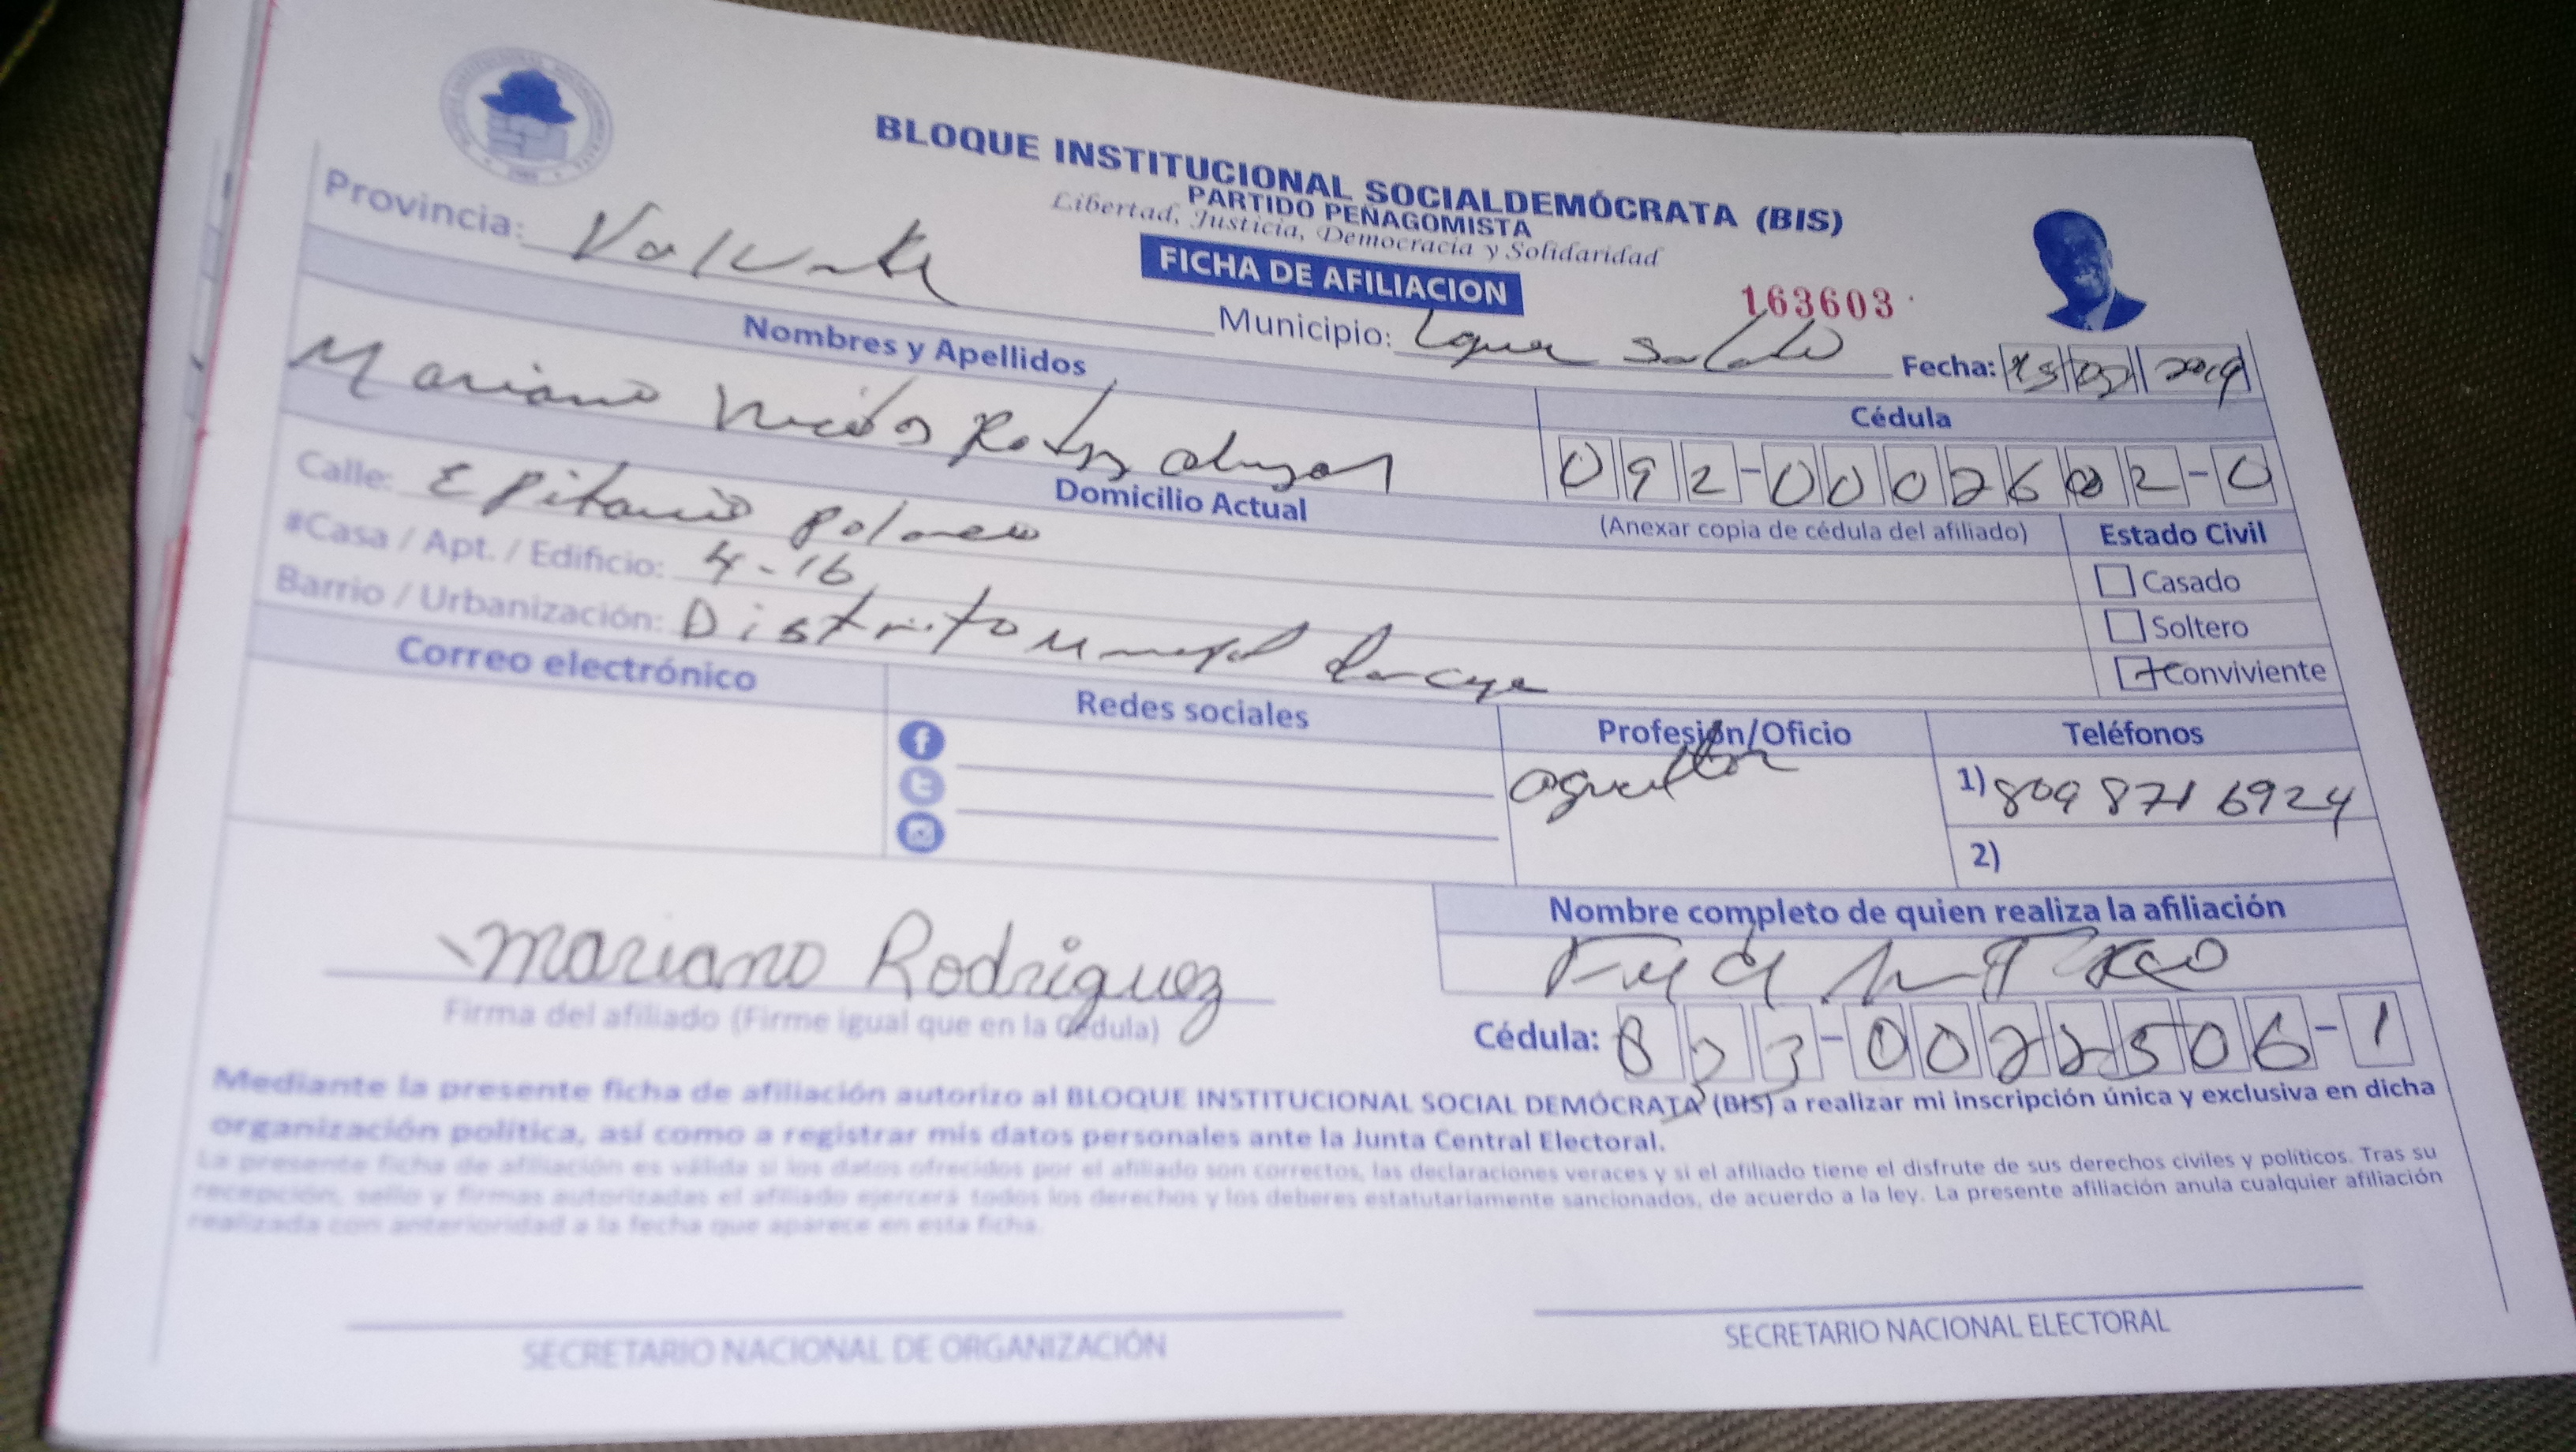 BLOQUE INSTITUCIONAL SOCIALDEMÓCRATA (BIS)
PARTIDO PEÑAGOMISTA
Libertad, Justicia, Democracia y Solidaridad
FICHA DE AFILIACION
163603
Provincia:
Municipio:
Fecha: 2019
Nombres y Apellidos
Mariano
Cédula
092-0002602-0
(Anexar copia de cédula del afiliado)
Domicilio Actual
Calle: Epifanio Polanco
#Casa / Apt. / Edificio: 4-16
Barrio / Urbanización: Distrito
Estado Civil
Casado
Soltero
Conviviente
Correo electrónico
Redes sociales
Profesión/Oficio
Teléfonos
1) 809 871 6924
2)
Mariano Rodriguez
Firma del afiliado (Firme igual que en la Cédula)
Nombre completo de quien realiza la afiliación
Cédula:
Mediante la presente ficha de afiliación autorizo al BLOQUE INSTITUCIONAL SOCIAL DEMÓCRATA (BIS) a realizar mi inscripción única y exclusiva en dicha
organización política, así como a registrar mis datos personales ante la Junta Central Electoral.
La presente ficha de afiliación es válida si los datos ofrecidos por el afiliado son correctos, las declaraciones veraces y si el afiliado tiene el disfrute de sus derechos civiles y políticos. Tras su
recepción, sello y firmas autorizadas el afiliado ejercerá todos los derechos y los deberes estatutariamente sancionados, de acuerdo a la ley. La presente afiliación anula cualquier afiliación
realizada con anterioridad a la fecha que aparece en esta ficha.
SECRETARIO NACIONAL DE ORGANIZACIÓN
SECRETARIO NACIONAL ELECTORAL